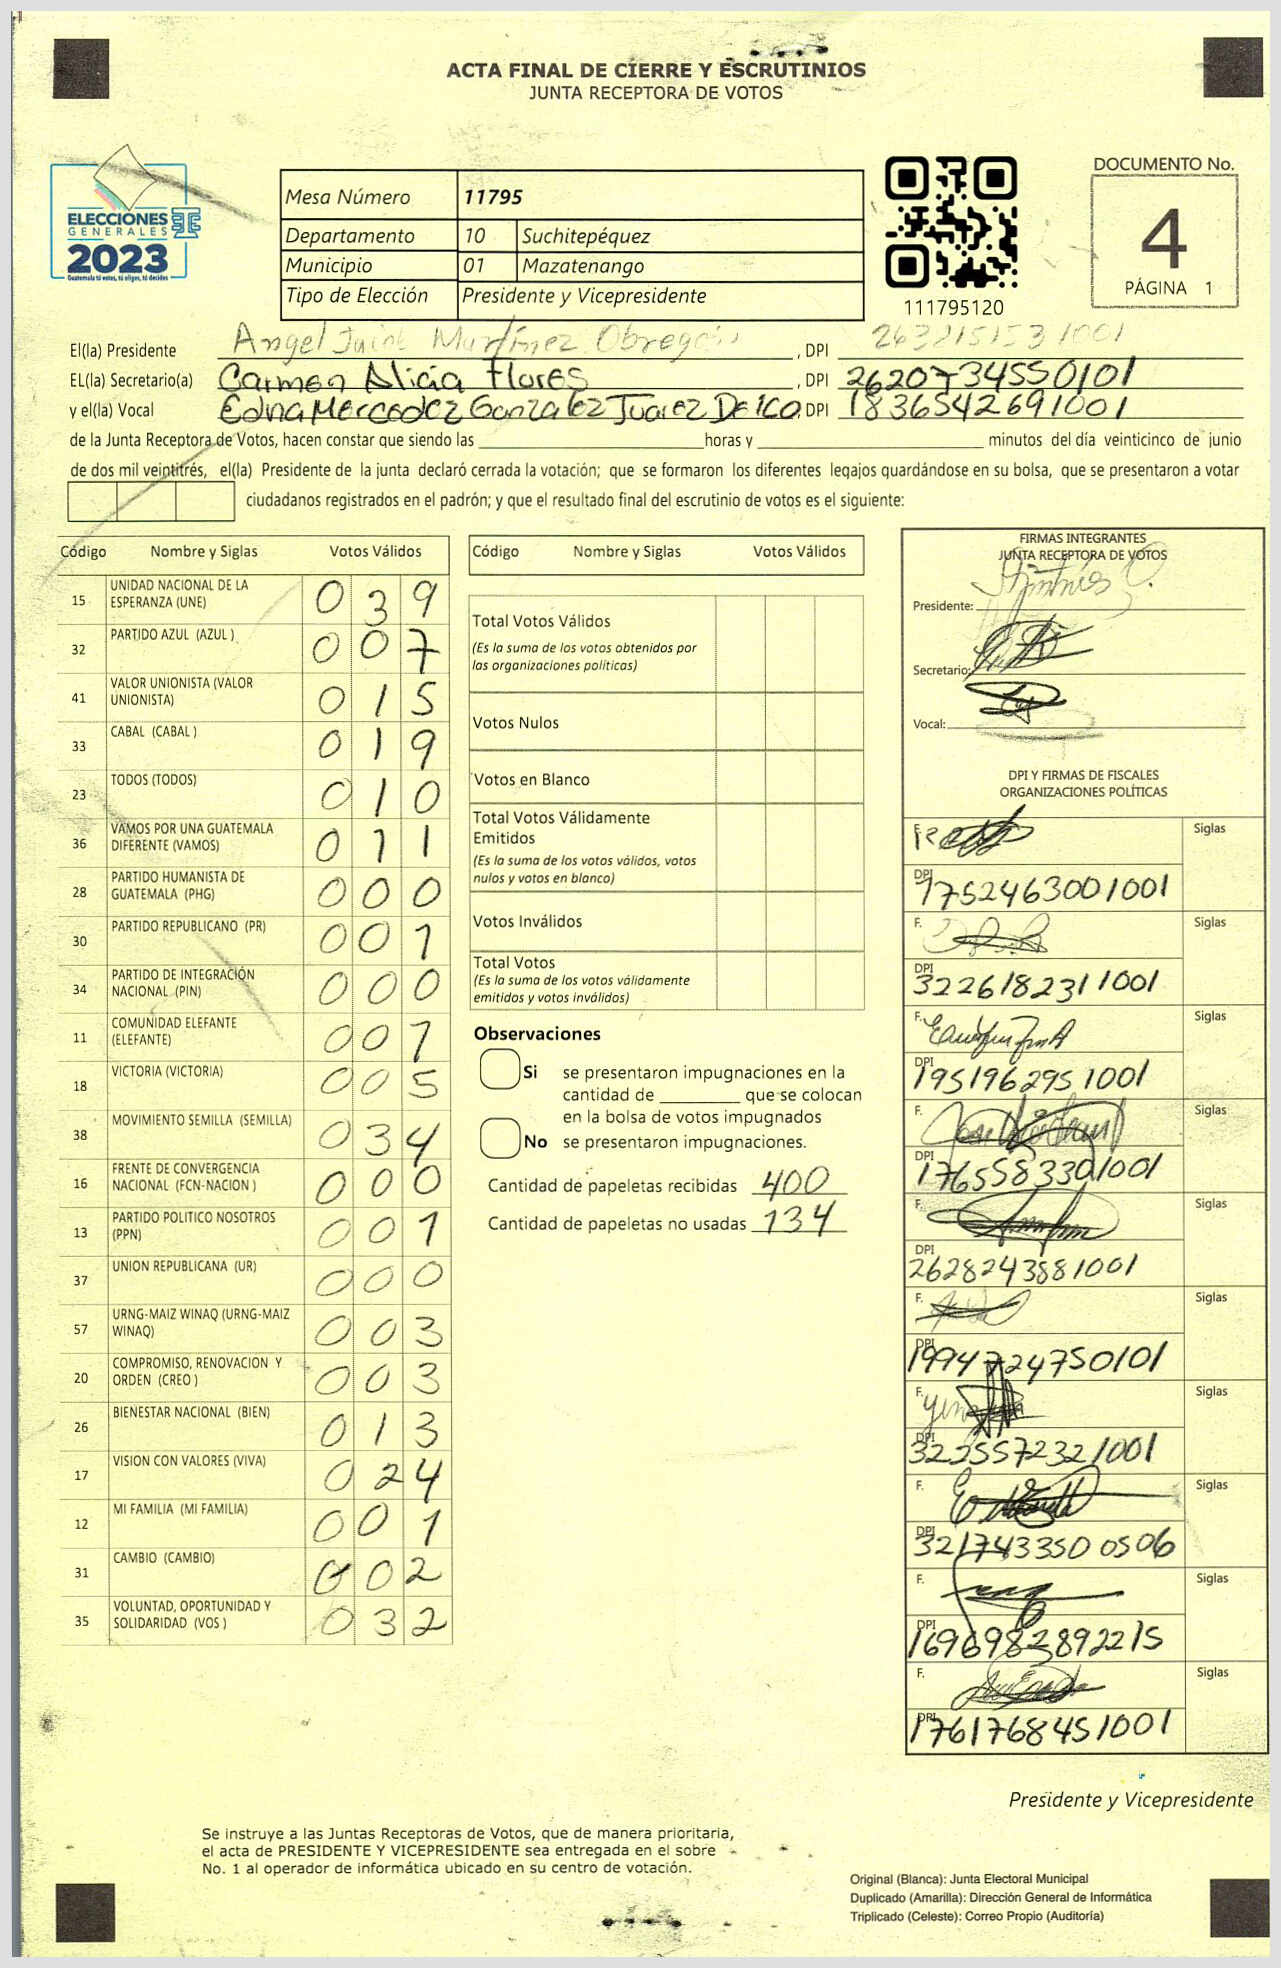 ACTA FINAL DE CIERRE Y ESCRUTINIOS
JUNTA RECEPTORA DE VOTOS
ELECCIONES
GENERALES
2023
Guatemala tú votas, tú eliges, tú decides
Mesa Número 11795
Departamento 10 Suchitepéquez
Municipio 01 Mazatenango
Tipo de Elección Presidente y Vicepresidente
111795120
DOCUMENTO No.
4
PÁGINA 1
El(la) Presidente Angel Martínez Obregón, DPI
EL(la) Secretario(a) Carmen Alicia Flores, DPI 2620734550101
y el(la) Vocal Edna Mercedez Gonzalez Juarez De Ico, DPI 1836542691001
de la Junta Receptora de Votos, hacen constar que siendo las ____ horas y ____ minutos del día veinticinco de junio
de dos mil veintitrés, el(la) Presidente de la junta declaró cerrada la votación; que se formaron los diferentes legajos guardándose en su bolsa, que se presentaron a votar
ciudadanos registrados en el padrón; y que el resultado final del escrutinio de votos es el siguiente:
Código Nombre y Siglas Votos Válidos
15 UNIDAD NACIONAL DE LA ESPERANZA (UNE) 039
32 PARTIDO AZUL (AZUL ) 007
41 VALOR UNIONISTA (VALOR UNIONISTA) 015
33 CABAL (CABAL ) 019
23 TODOS (TODOS) 010
36 VAMOS POR UNA GUATEMALA DIFERENTE (VAMOS) 011
28 PARTIDO HUMANISTA DE GUATEMALA (PHG) 000
30 PARTIDO REPUBLICANO (PR) 001
34 PARTIDO DE INTEGRACIÓN NACIONAL (PIN) 000
11 COMUNIDAD ELEFANTE (ELEFANTE) 001
18 VICTORIA (VICTORIA) 005
38 MOVIMIENTO SEMILLA (SEMILLA) 034
16 FRENTE DE CONVERGENCIA NACIONAL (FCN-NACION ) 000
13 PARTIDO POLITICO NOSOTROS (PPN) 001
37 UNION REPUBLICANA (UR) 000
57 URNG-MAIZ WINAQ (URNG-MAIZ WINAQ) 003
20 COMPROMISO, RENOVACION Y ORDEN (CREO ) 003
26 BIENESTAR NACIONAL (BIEN) 013
17 VISION CON VALORES (VIVA) 024
12 MI FAMILIA (MI FAMILIA) 001
31 CAMBIO (CAMBIO) 002
35 VOLUNTAD, OPORTUNIDAD Y SOLIDARIDAD (VOS ) 032
Código Nombre y Siglas Votos Válidos
Total Votos Válidos
(Es la suma de los votos obtenidos por
las organizaciones políticas)
Votos Nulos
Votos en Blanco
Total Votos Válidamente
Emitidos
(Es la suma de los votos válidos, votos
nulos y votos en blanco)
Votos Inválidos
Total Votos
(Es la suma de los votos válidamente
emitidos y votos inválidos)
Observaciones
Si se presentaron impugnaciones en la
cantidad de ____ que se colocan
en la bolsa de votos impugnados
No se presentaron impugnaciones.
Cantidad de papeletas recibidas 400
Cantidad de papeletas no usadas 134
FIRMAS INTEGRANTES
JUNTA RECEPTORA DE VOTOS
Presidente:
Secretario:
Vocal:
DPI Y FIRMAS DE FISCALES
ORGANIZACIONES POLÍTICAS
F. Siglas
DPI 1752463001001
F. Siglas
DPI 3226182311001
F. Siglas
DPI 1951962951001
F. Siglas
DPI 1765583301001
F. Siglas
DPI 2628243881001
F. Siglas
DPI 1994724750101
F. Siglas
DPI 3225572321001
F. Siglas
DPI 3217433500506
F. Siglas
DPI 1696982892215
F. Siglas
DPI 1761768451001
Presidente y Vicepresidente
Se instruye a las Juntas Receptoras de Votos, que de manera prioritaria,
el acta de PRESIDENTE Y VICEPRESIDENTE sea entregada en el sobre
No. 1 al operador de informática ubicado en su centro de votación.
Original (Blanca): Junta Electoral Municipal
Duplicado (Amarilla): Dirección General de Informática
Triplicado (Celeste): Correo Propio (Auditoría)